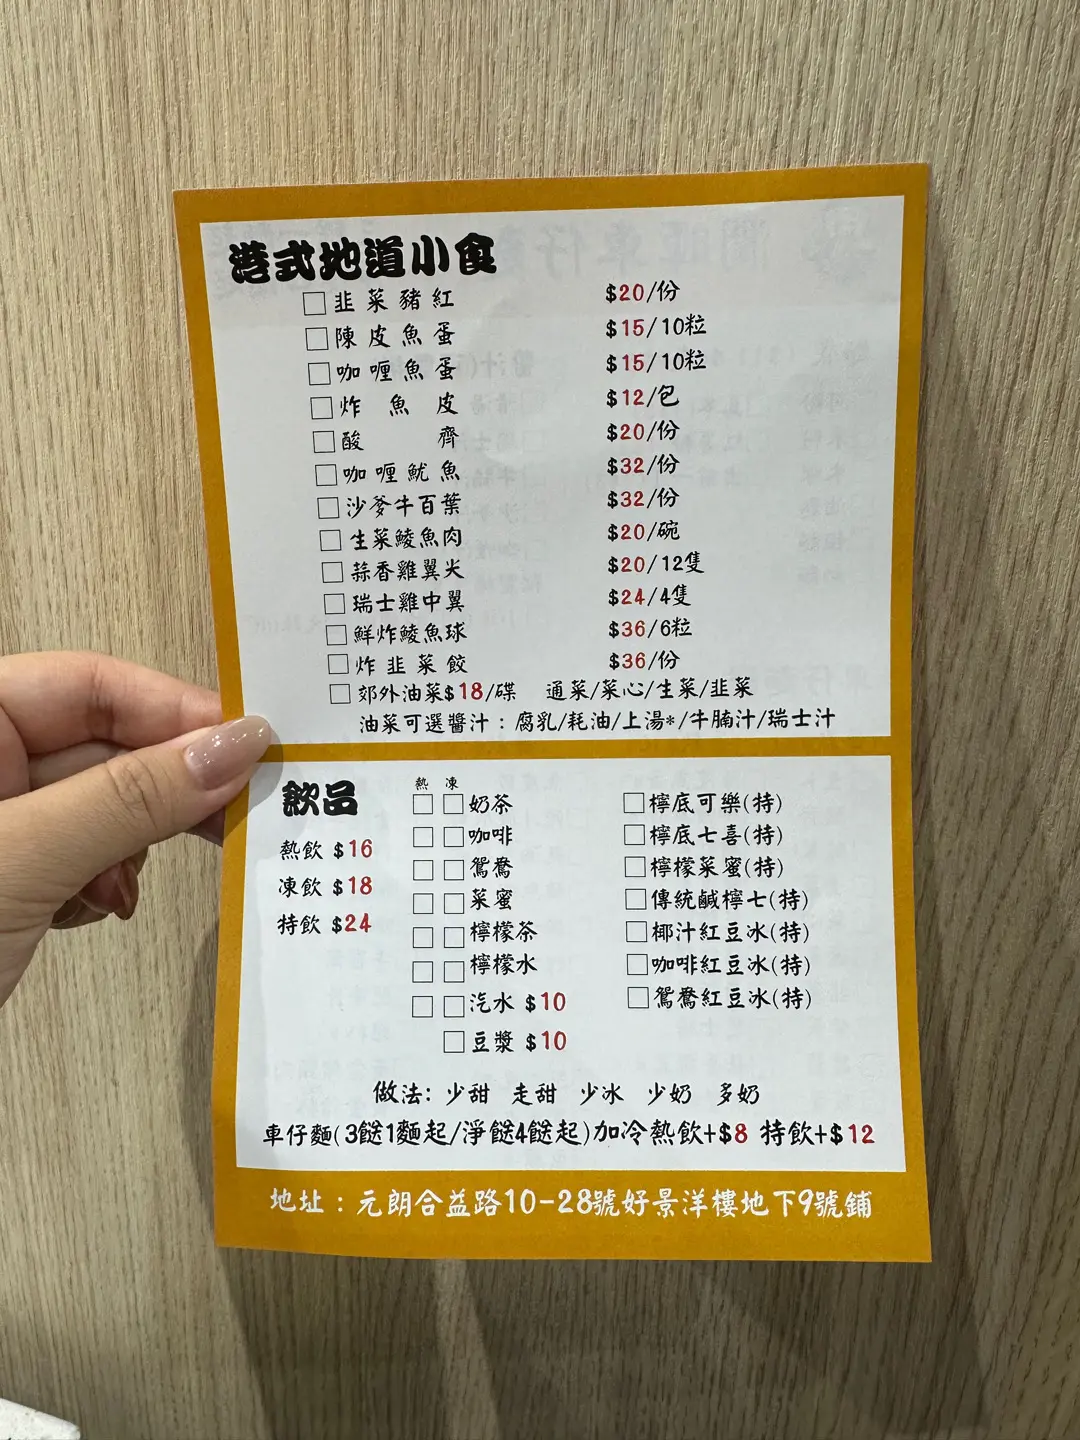 港式地道小食
韭菜豬紅 $20/份
陳皮魚蛋 $15/10粒
咖喱魚蛋 $15/10粒
炸魚皮 $12/包
酸齋 $20/份
咖喱魷魚 $32/份
沙爹牛百葉 $32/份
生菜鯪魚肉 $20/碗
蒜香雞翼尖 $20/12隻
瑞士雞中翼 $24/4隻
鮮炸鯪魚球 $36/6粒
炸韭菜餃 $36/份
郊外油菜$18/碟 通菜/菜心/生菜/韭菜
油菜可選醬汁：腐乳/耗油/上湯*/牛腩汁/瑞士汁
飲品
熱飲 $16
凍飲 $18
特飲 $24
熱 凍
奶茶
咖啡
鴛鴦
菜蜜
檸檬茶
檸檬水
汽水 $10
豆漿 $10
檸底可樂(特)
檸底七喜(特)
檸檬菜蜜(特)
傳統鹹檸七(特)
椰汁紅豆冰(特)
咖啡紅豆冰(特)
鴛鴦紅豆冰(特)
做法: 少甜 走甜 少冰 少奶 多奶
車仔麵(3餸1麵起/淨餸4餸起)加冷熱飲+$8 特飲+$12
地址：元朗合益路10-28號好景洋樓地下9號鋪